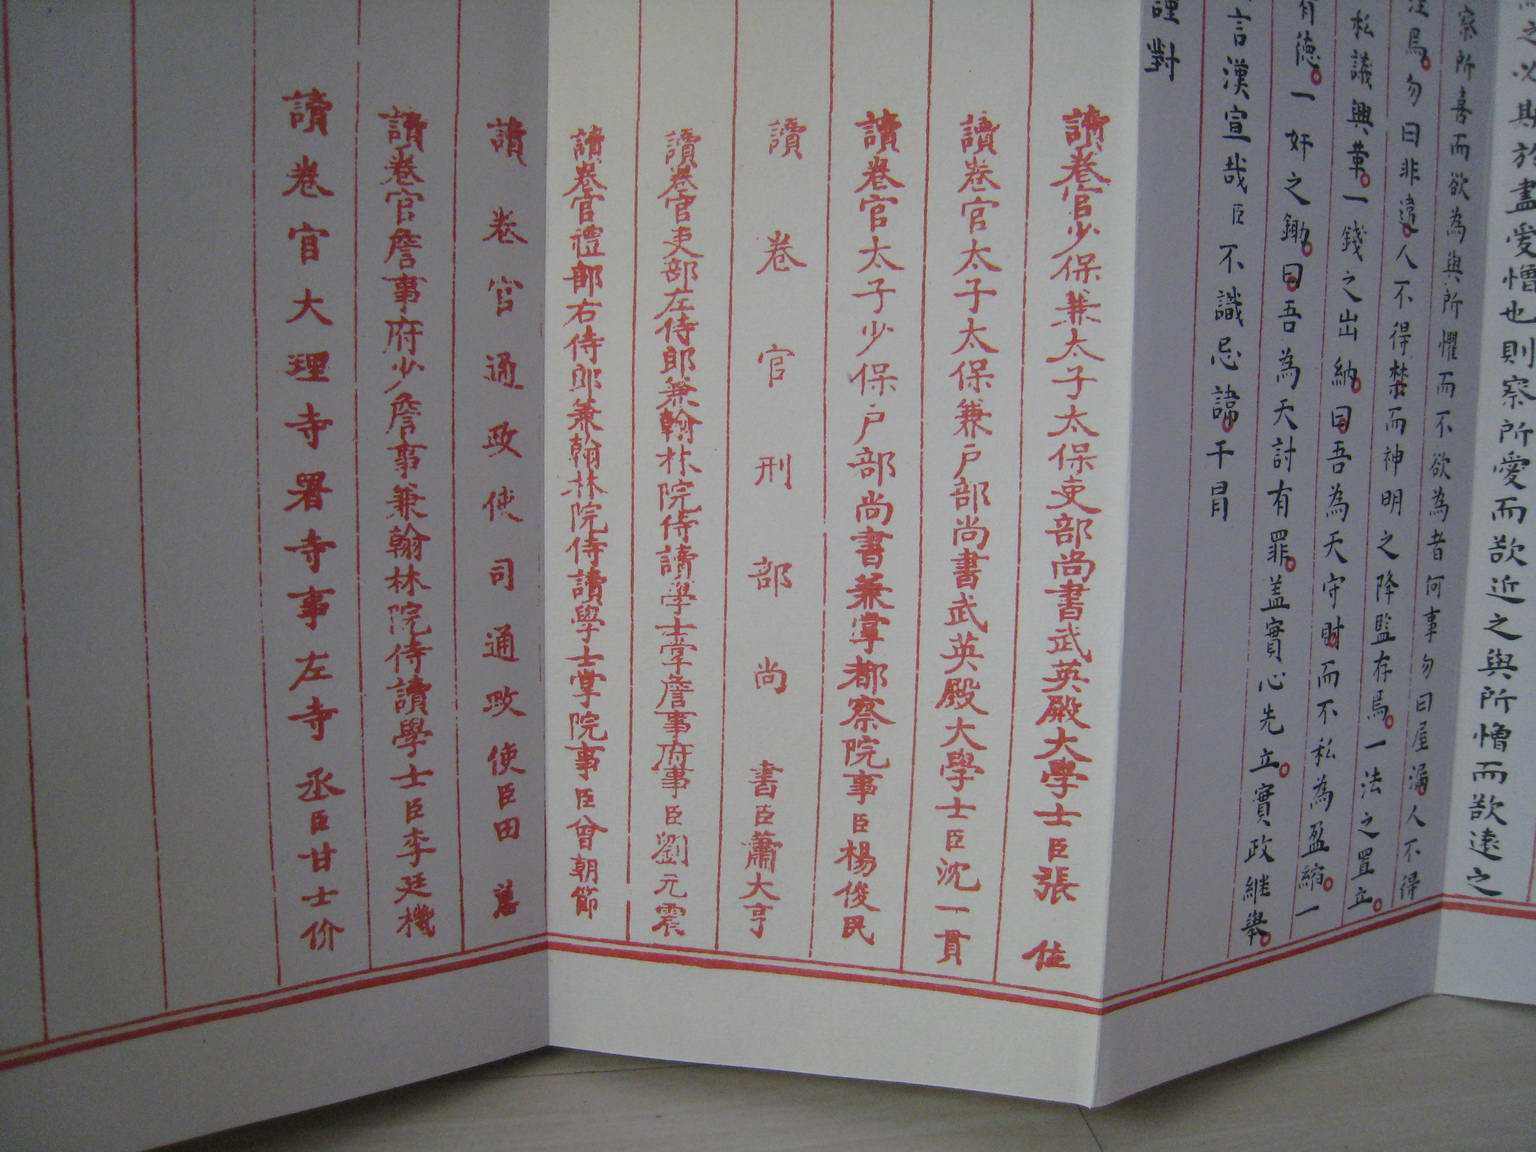 之以期於盡愛憎也則察所愛而欲近之與所憎而欲遠之
察所喜而欲為與所懼而不欲為者何事勿曰屋漏人不得
焉勿曰非遠人不得禁而神明之降監存焉一法之置立
私議興革一錢之出納曰吾為天守財而不私為盈縮一
有德一奸之鋤曰吾為天討有罪蓋實心先立實政繼舉
言漢宣哉臣不識忌諱干冒
謹對
讀卷官少保兼太子太保吏部尚書武英殿大學士臣張位
讀卷官太子太保兼戶部尚書武英殿大學士臣沈一貫
讀卷官太子少保戶部尚書兼掌都察院事臣楊俊民
讀卷官刑部尚書臣蕭大亨
讀卷官吏部左侍郎兼翰林院侍讀學士掌詹事府事臣劉元震
讀卷官禮部右侍郎兼翰林院侍讀學士掌院事臣曾朝節
讀卷官通政使司通政使臣田蕙
讀卷官詹事府少詹事兼翰林院侍讀學士臣李廷機
讀卷官大理寺署寺事左寺丞臣甘士价